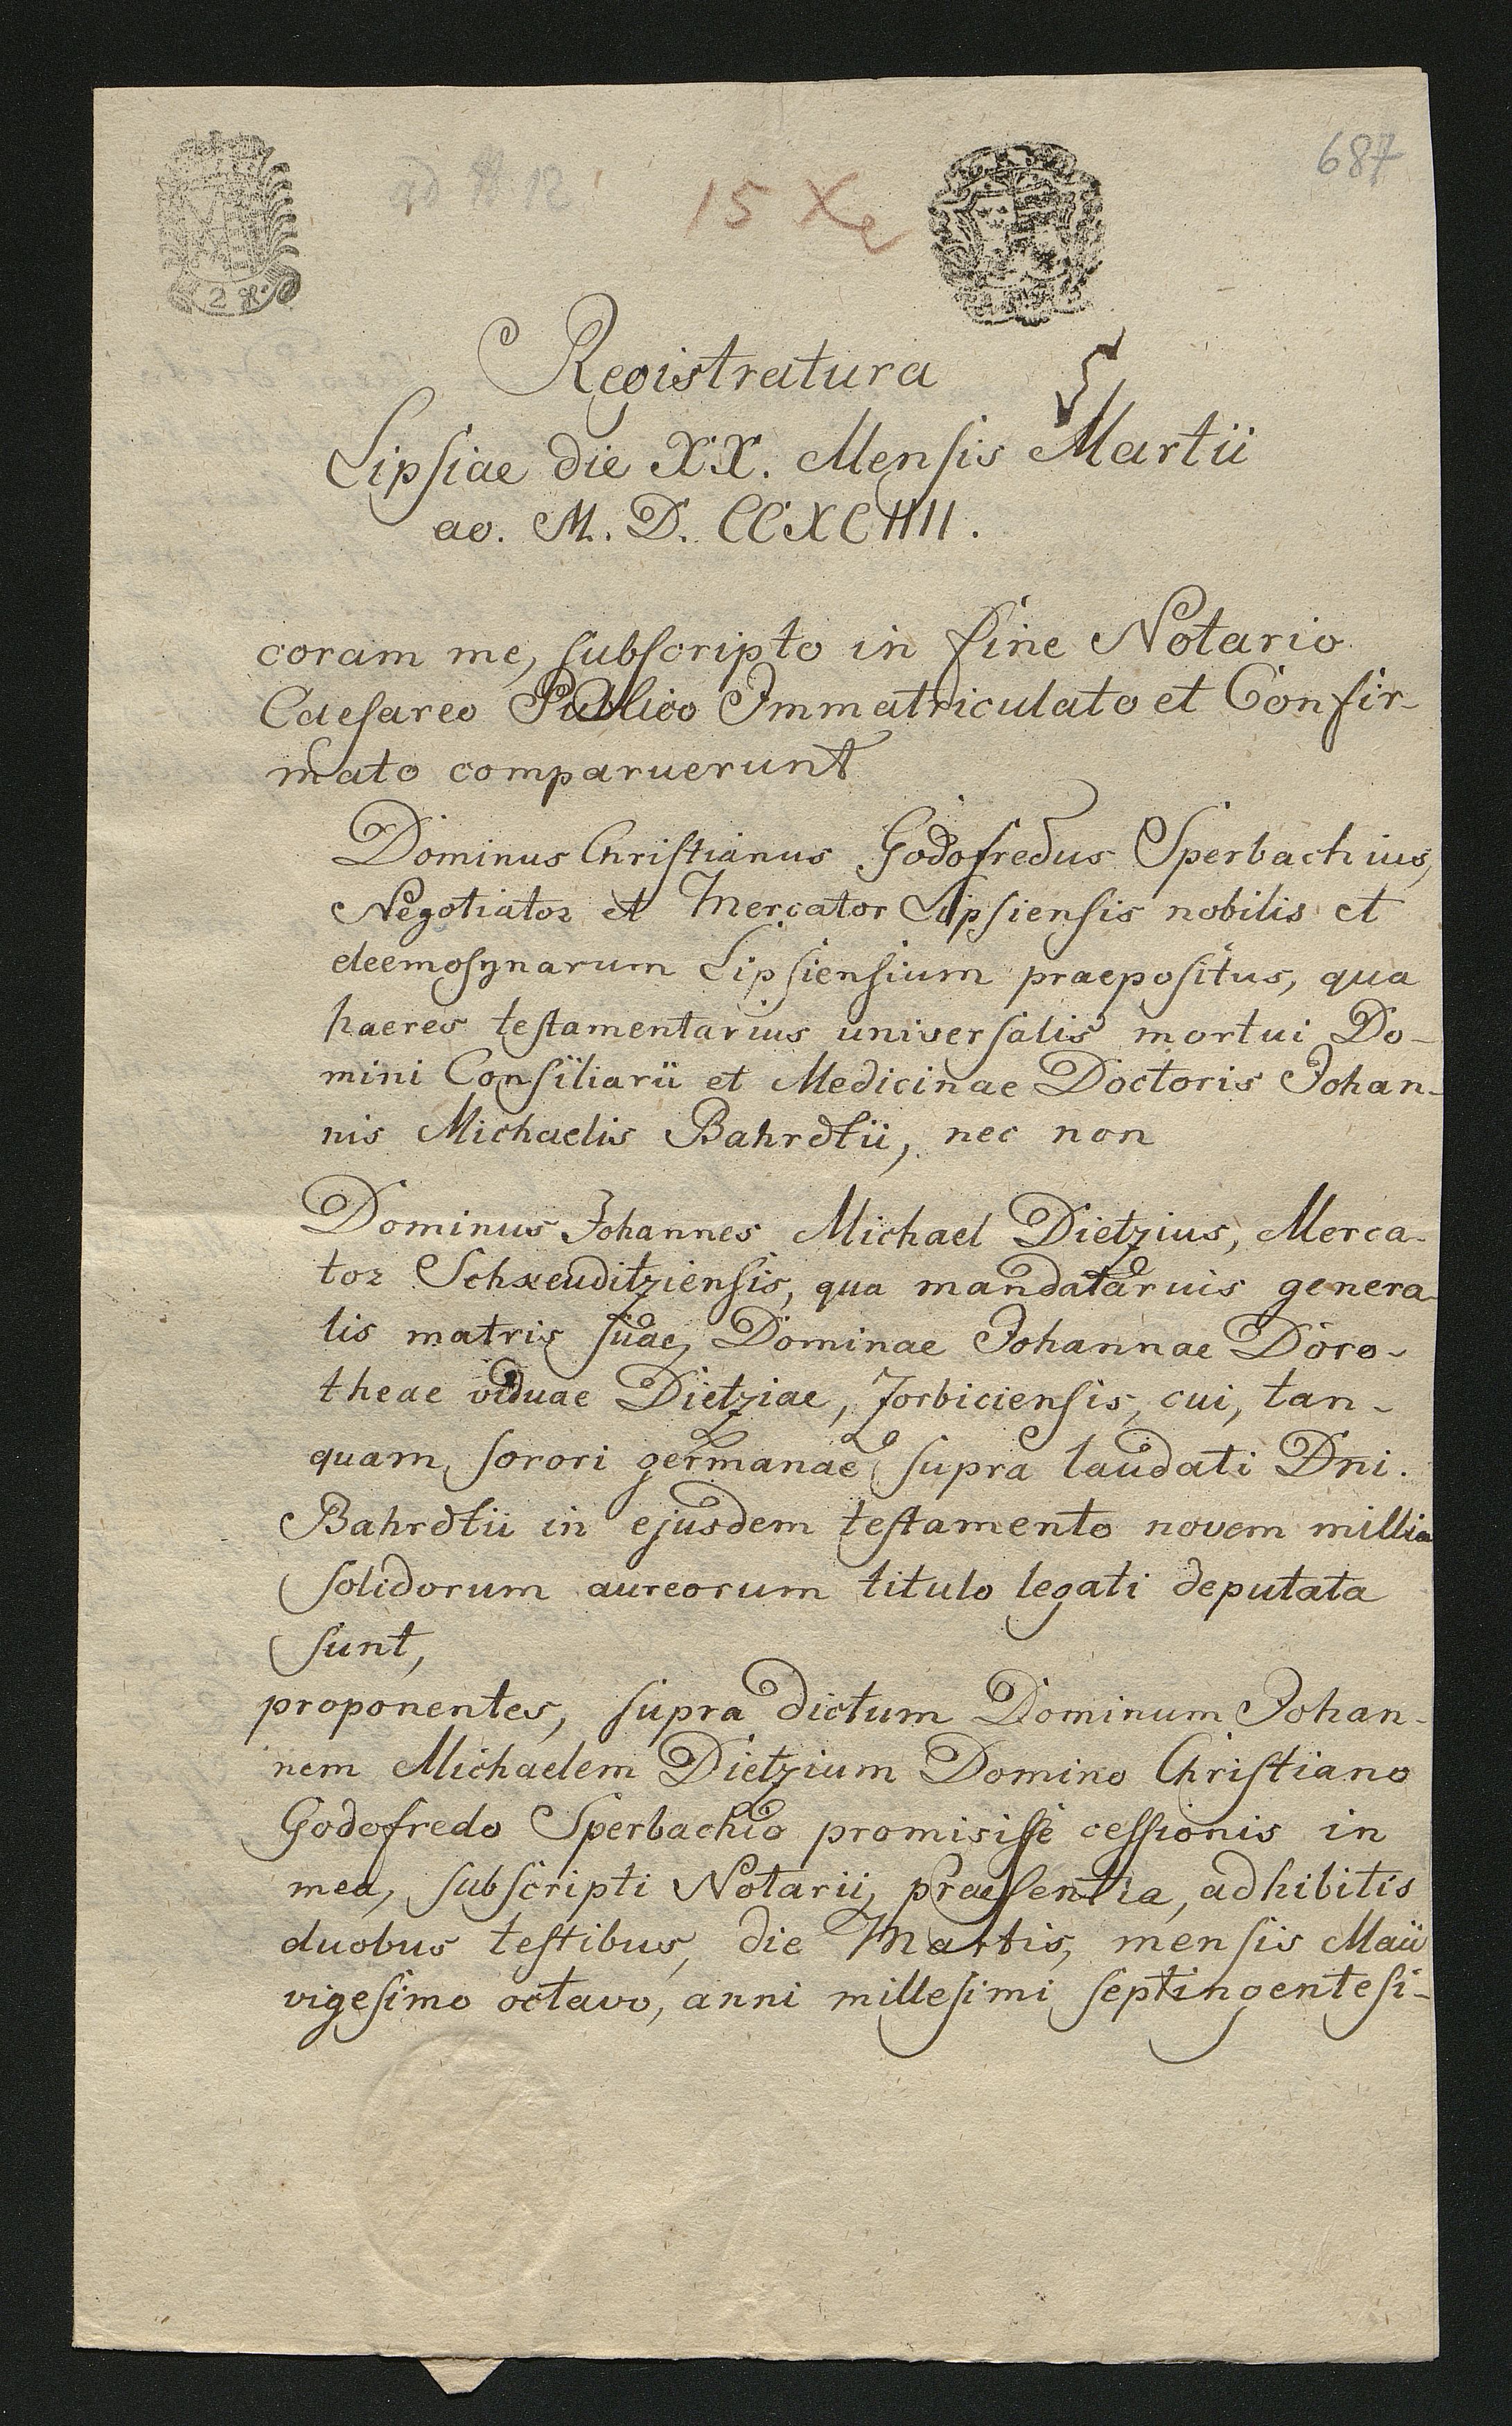 687
ad № 12
15 Xe
2 gr.
5
Registratura
Lipsiae die XX. Mensis Martii
ao. M. D. CCXCIIII.
coram me, subscripto in fine Notario
Caesareo Publico Immatriculato et Confir-
mato comparuerunt
Dominus Christianus Godofredus Sperbachius,
Negotiator et Mercator Lipsiensis nobilis et
eleemosynarum Lipsiensium praepositus, qua
haeres testamentarius universalis mortui Do-
mini Consiliarii et Medicinae Doctoris Johan-
nis Michaelis Bahrdtii, nec non
Dominus Johannes Michael Dietzius, Merca-
tor Schkeuditziensis, qua mandatarius genera-
lis matris suae, Dominae Johannae Doro-
theae viduae Dietziae, Jorbiciensis, cui, tan-
quam sorori germanae supra laudati Dni.
Bahrdtii in ejusdem testamento novem millia
solidorum aureorum titulo legati deputata
sunt,
proponentes, supra dictum Dominum Johan-
nem Michaelem Dietzium Domino Christiano
Godofredo Sperbachio promisisse cessionis in
mea, subscripti Notarii, praesentia, adhibitis
duobus testibus, die Martis, mensis Maii
vigesimo octavo, anni millesimi septingentesi-